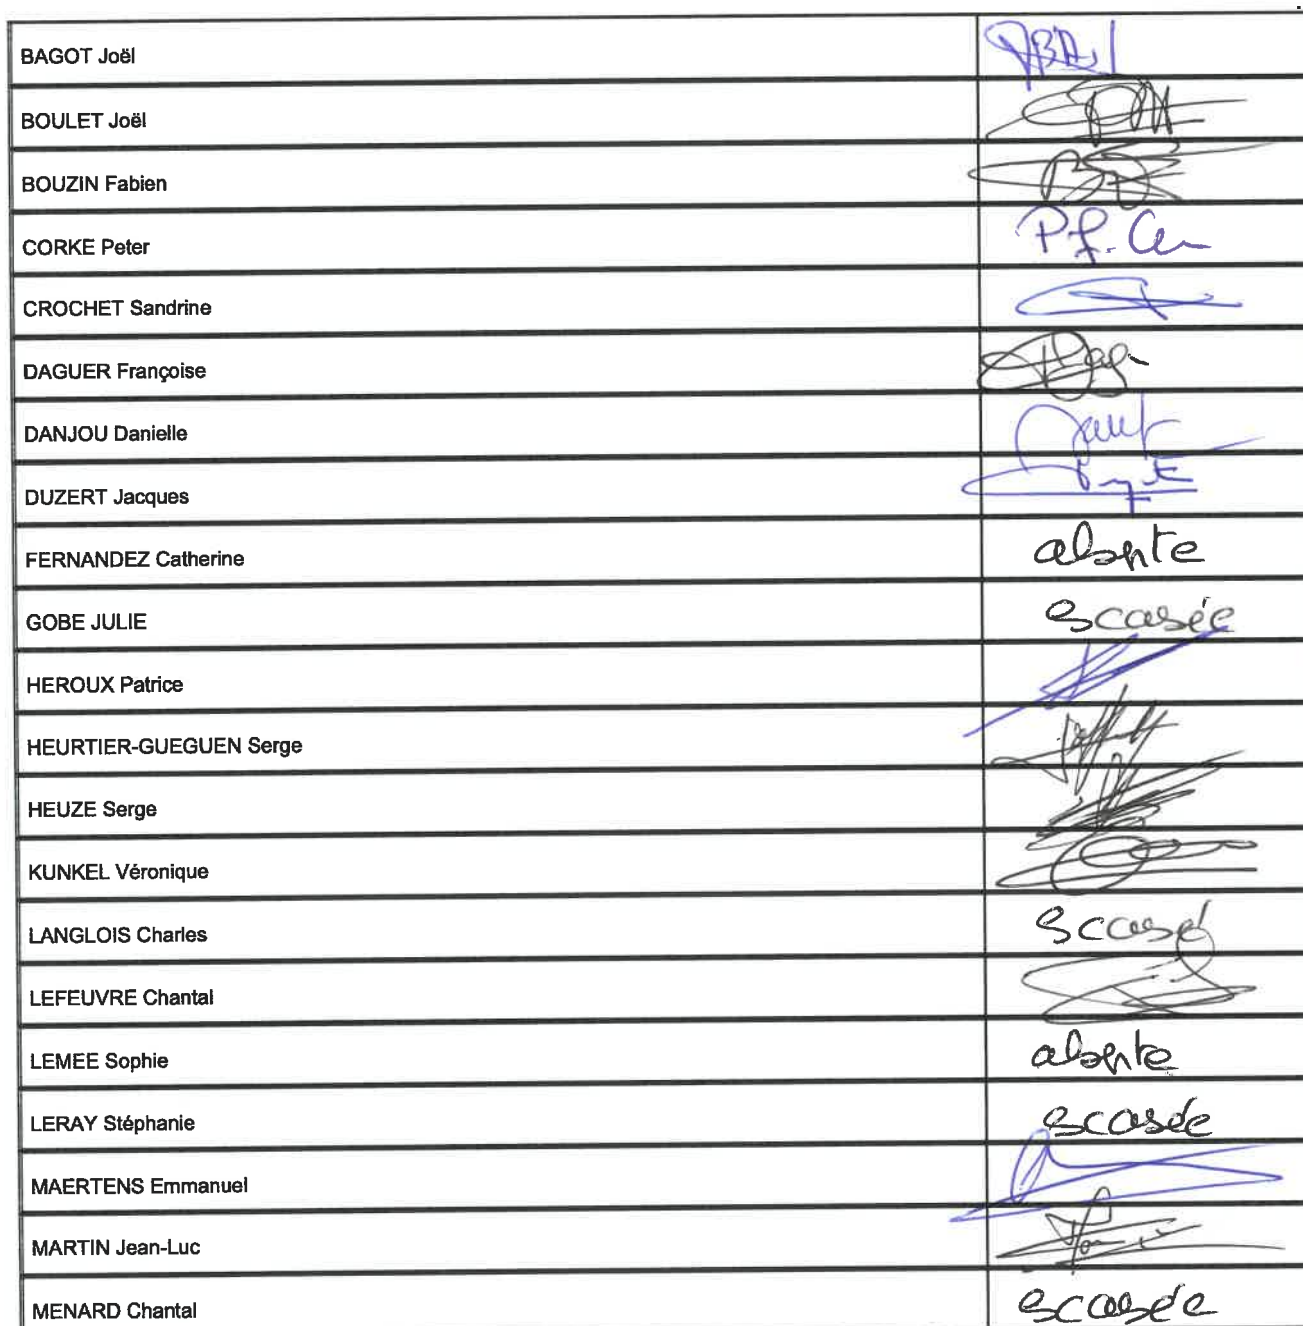 BAGOT Joël
BOULET Joël
BOUZIN Fabien
CORKE Peter
CROCHET Sandrine
DAGUER Françoise
DANJOU Danielle
DUZERT Jacques
FERNANDEZ Catherine absente
GOBE JULIE excusée
HEROUX Patrice
HEURTIER-GUEGUEN Serge
HEUZE Serge
KUNKEL Véronique
LANGLOIS Charles excusé
LEFEUVRE Chantal
LEMEE Sophie absente
LERAY Stéphanie excusée
MAERTENS Emmanuel
MARTIN Jean-Luc
MENARD Chantal excusée